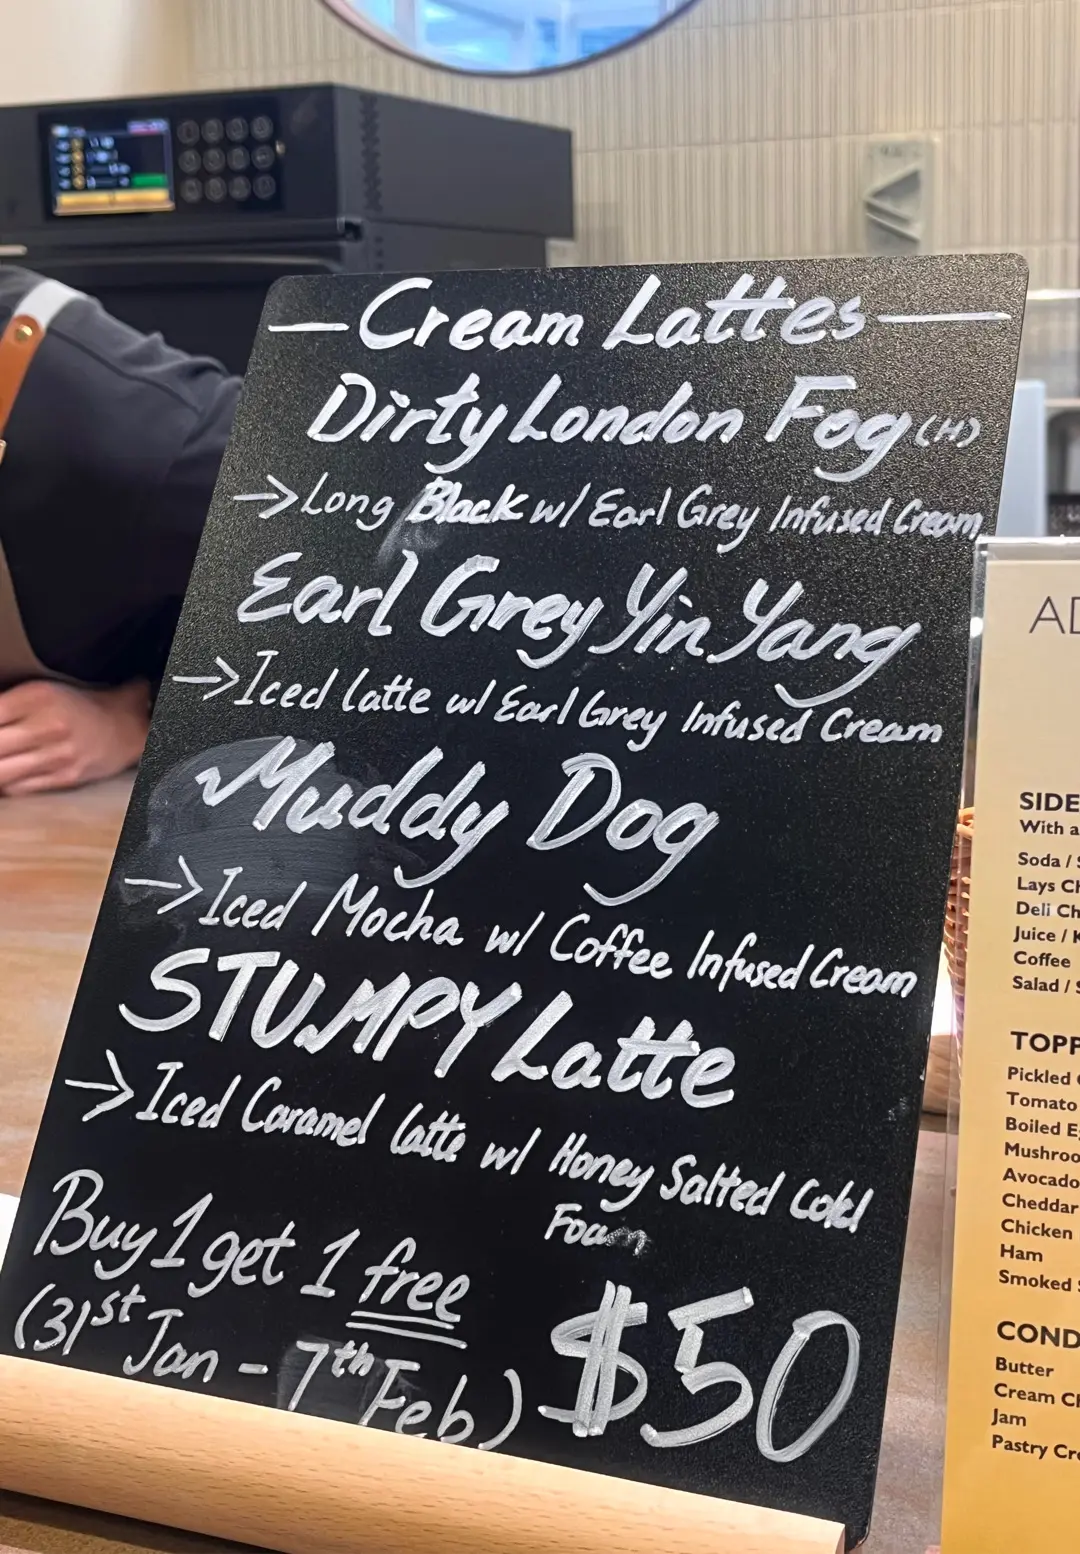 Cream Lattes
Dirty London Fog (H)
→ Long Black w/ Earl Grey Infused Cream
Earl Grey Yin Yang
→ Iced latte w/ Earl Grey Infused Cream
Muddy Dog
→ Iced Mocha w/ Coffee Infused Cream
STUMPY Latte
→ Iced Caramel latte w/ Honey Salted Cold
Foam
Buy 1 get 1 free
(31st Jan - 7th Feb)
$50
SIDE
With a
Soda /
Lays
Deli
Juice /
Coffee
Salad /
TOPP
Pickled
Tomato
Boiled
Mushroo
Avocado
Cheddar
Chicken
Ham
Smoked
COND
Butter
Cream
Jam
Pastry